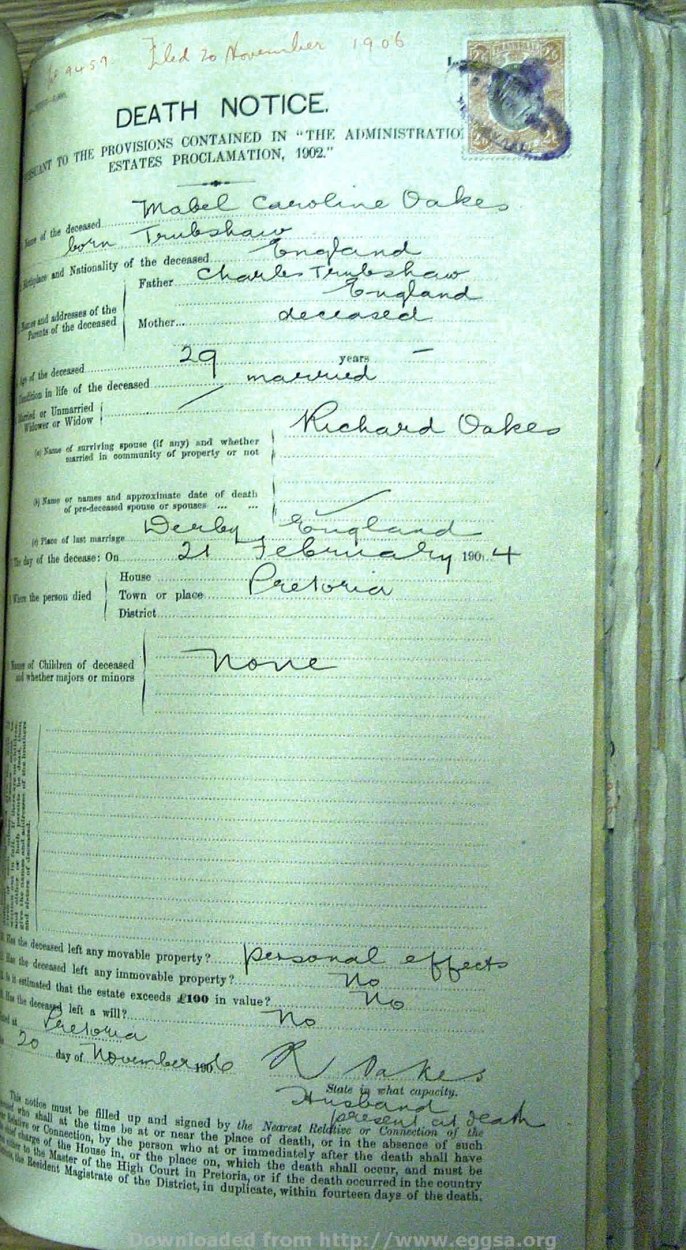 9457. Filed 20 November 1906
DEATH NOTICE.
TO THE PROVISIONS CONTAINED IN "THE ADMINISTRATIO
ESTATES PROCLAMATION, 1902."
Mabel Caroline Oakes
of the deceased
born Trubshaw
and Nationality of the deceased England
Father Charles Trubshaw
England
and addresses of the
Parents of the deceased
Mother... deceased
of the deceased 29 years –
in life of the deceased married
or Unmarried
Widower or Widow
Richard Oakes
(a) Name of surviving spouse (if any) and whether
married in community of property or not
(b) Name or names and approximate date of death
of pre-deceased spouse or spouses ... ...
(c) Place of last marriage Derby, England
The day of the decease: On 21 February 190.4
House
the person died Town or place Pretoria
District
of Children of deceased
and whether majors or minors
None
Has the deceased left any movable property? personal effects
Has the deceased left any immovable property? No
Is it estimated that the estate exceeds £100 in value? No
Has the deceased left a will? No
at Pretoria
20 day of November 1906 R Oakes
State in what capacity.
Husband
present at death
This notice must be filled up and signed by the Nearest Relative or Connection of the
who shall at the time be at or near the place of death, or in the absence of such
Relative or Connection, by the person who at or immediately after the death shall have
charge of the House in, or the place on, which the death shall occur, and must be
to the Master of the High Court in Pretoria, or if the death occurred in the country
the Resident Magistrate of the District, in duplicate, within fourteen days of the death.
Downloaded from http://www.eggsa.org